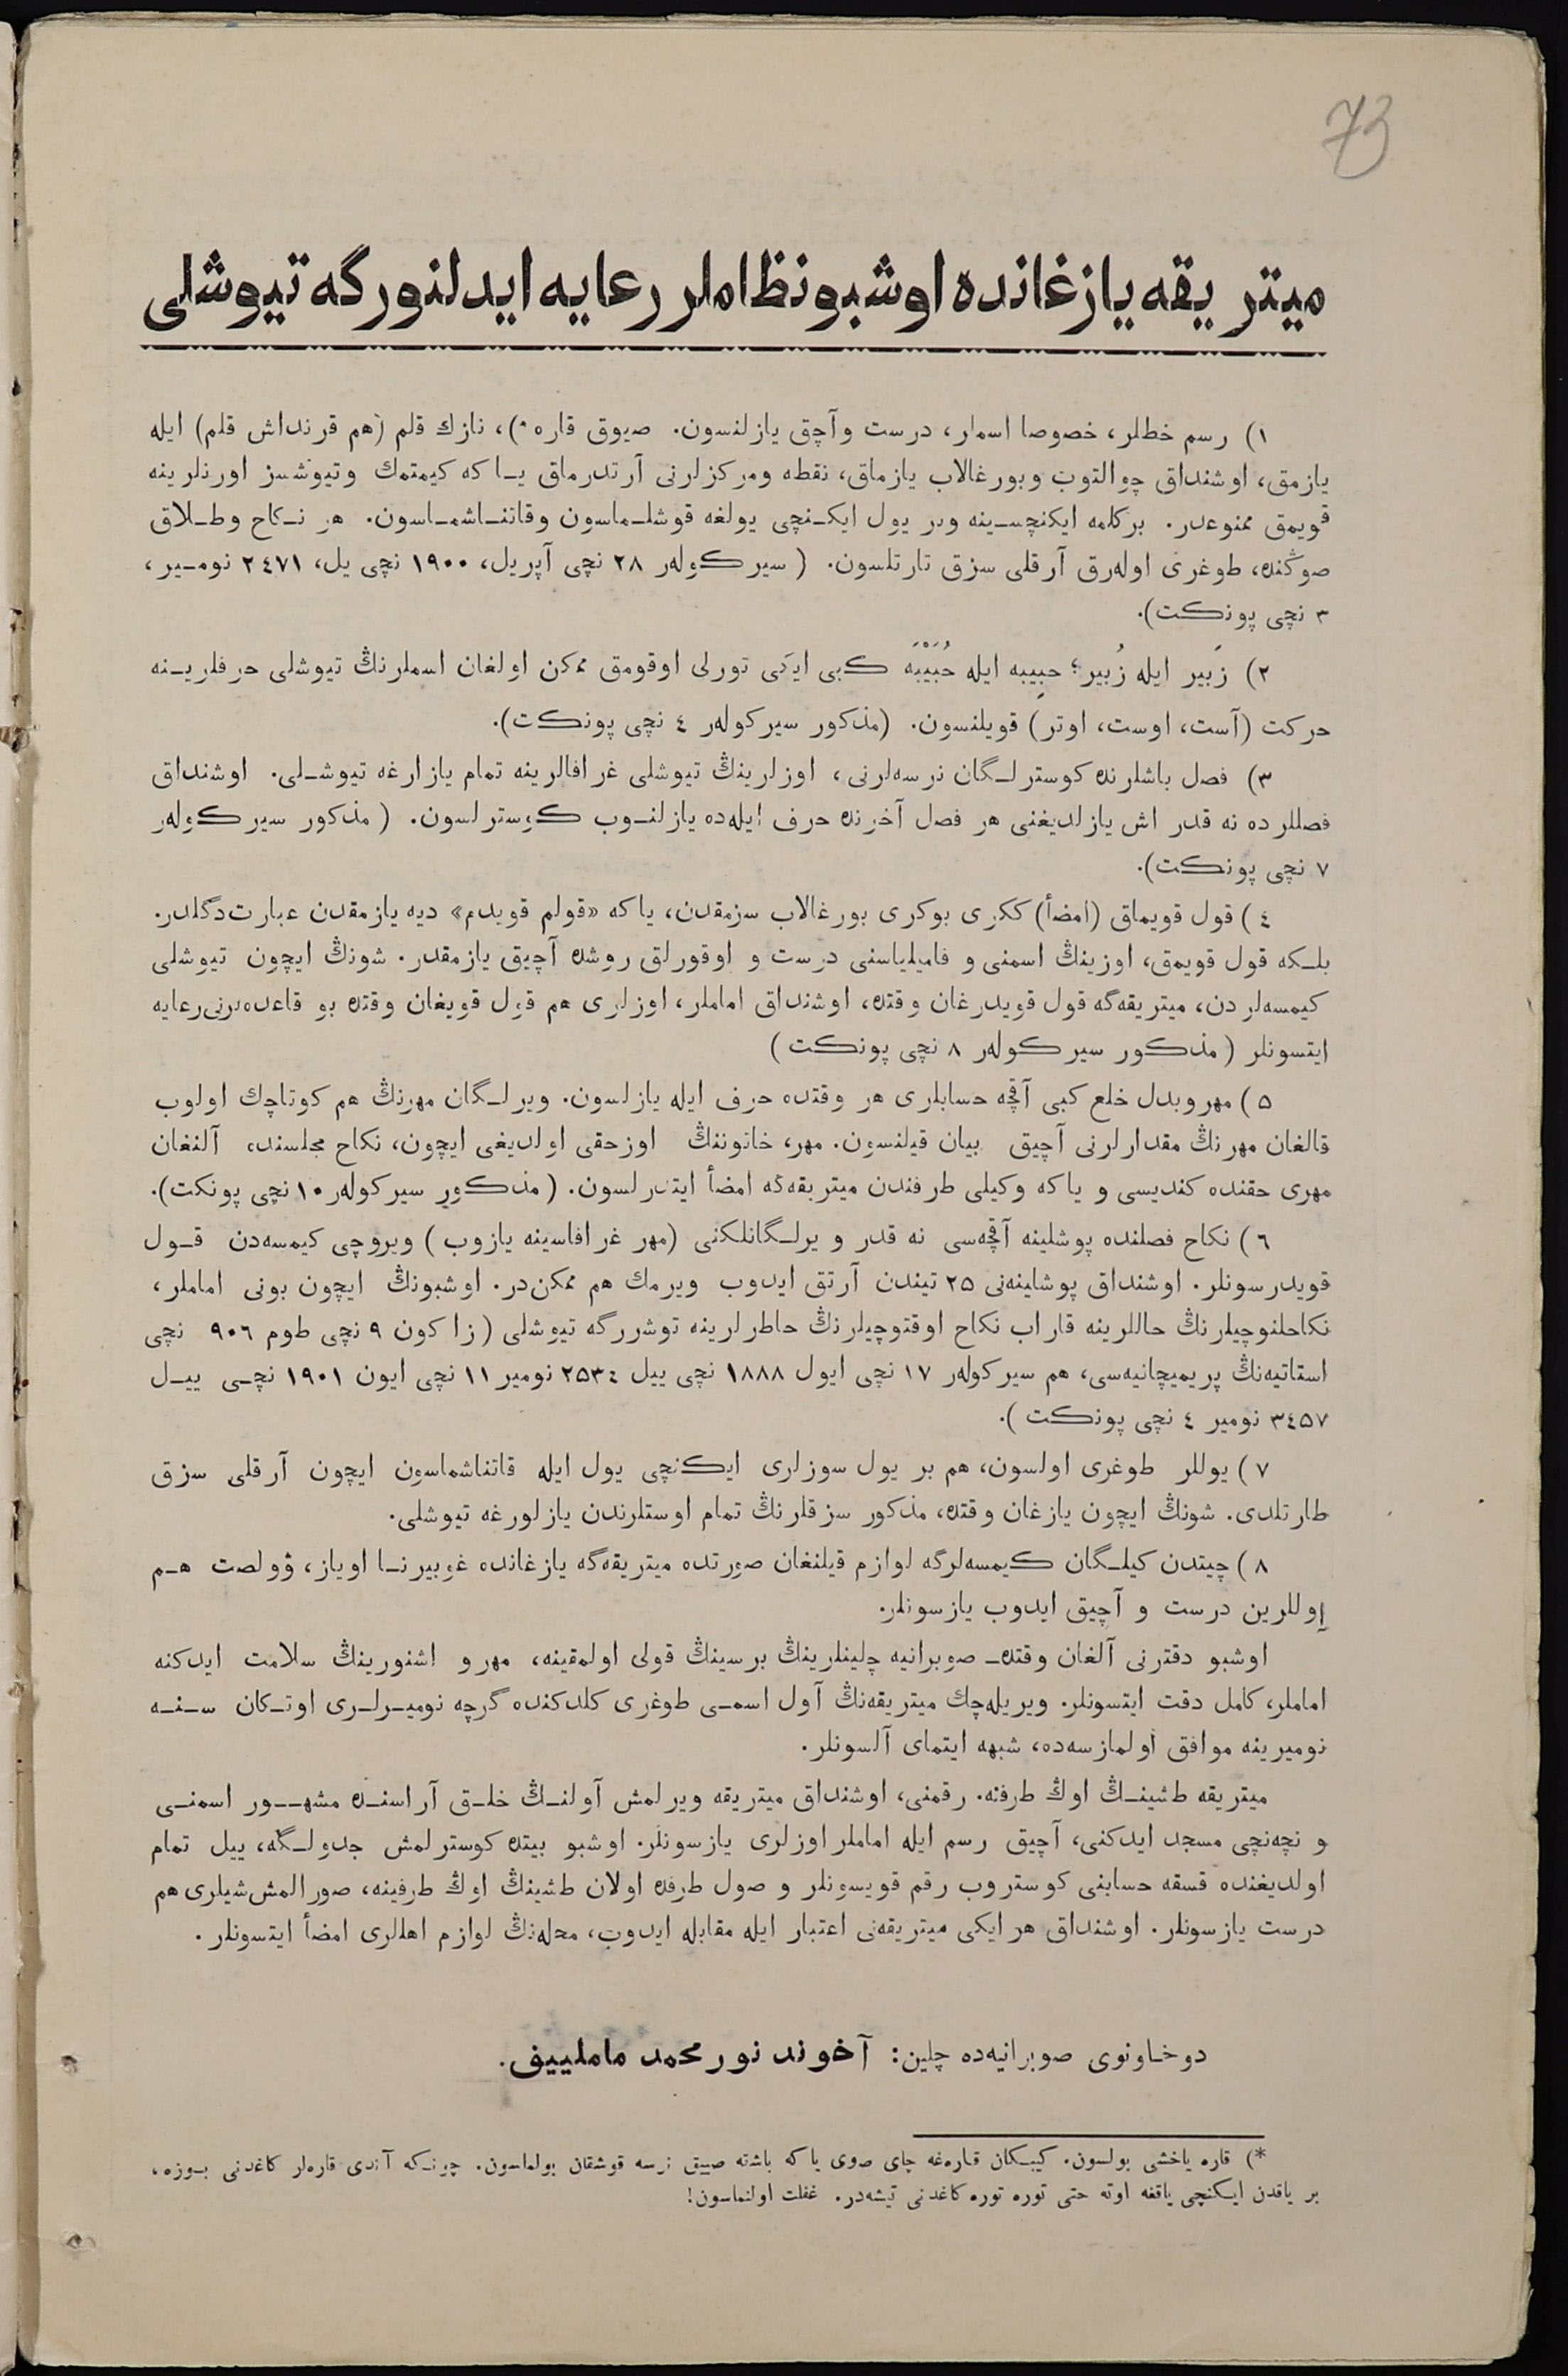 73
ميتريقه يازغانده اوشبو نظاملر رعايه ايدلنورگه تيوشلى
١) رسم خطلر، خصوصا اسملر، درست وآچق يازلنسون. صيوق قاره*)، نازك قلم (هم قرنداش قلم) ايله
يازمق، اوشنداق چوالتوب وبورغالاب يازماق، نقطه ومركزلرنى آرتدرماق يا كه كيمتمك وتيوشسز اورنلرينه
قويمق ممنوعدر. بركلمه ايكنچسينه وبر يول ايكنچى يولغه قوشلماسون وقاتناشماسون. هر نكاح وطلاق
صوڭنده، طوغرى اوله‌رق آرقلى سزق تارتلسون. (سيركوله‌ر ٢٨ نچى آپريل، ١٩٠٠ نچى يل، ٢٤٧١ نومير،
٣ نچى پونكت).
٢) زَبير ايله زُبير؛ حبِيبه ايله حُبَيْبَه كبى ايكى تورلى اوقومق ممكن اولغان اسملرنڭ تيوشلى حرفلرينه
حركت (آست، اوست، اوتر) قويلنسون. (مذكور سيركوله‌ر ٤ نچى پونكت).
٣) فصل باشلرنده كوسترلگان نرسه‌لرنى، اوزلرينڭ تيوشلى غرافالرينه تمام يازارغه تيوشلى. اوشنداق
فصللرده نه قدر اش يازلديغنى هر فصل آخرنده حرف ايله‌ده يازلنوب كوسترلسون. (مذكور سيركوله‌ر
٧ نچى پونكت).
٤) قول قويماق (امضأ) ككرى بوكرى بورغالاب سزمقدن، ياكه «قولم قويدم» ديه يازمقدن عبارت دگلدر.
بلكه قول قويمق، اوزينڭ اسمنى و فاميلياسنى درست و اوقورلق روشده آچيق يازمقدر. شونڭ ايچون تيوشلى
كيمسه‌لردن، ميتريقه‌گه قول قويدرغان وقتده، اوشنداق اماملر، اوزلرى هم قول قويغان وقتده بو قاعده‌برنى رعايه
ايتسونلر (مذكور سيركوله‌ر ٨ نچى پونكت)
٥) مهروبدل خلع كبى آقچه حسابلرى هر وقتده حرف ايله يازلسون. ويرلگان مهرنڭ هم كوتاچك اولوب
قالغان مهرنڭ مقدارلرنى آچيق بيان قيلنسون. مهر، خاتوننڭ اوزحقى اولديغى ايچون، نكاح مجلسنده آلنغان
مهرى حقنده كنديسى و ياكه وكيلى طرفندن ميتريقه‌گه امضأ ايتدرلسون. (مذكور سيركوله‌ر ١٠ نچى پونكت).
٦) نكاح فصلنده پوشلينه آقچه‌سى نه قدر ويرلگانلكنى (مهر غرافاسينه يازوب) ويروچى كيمسه‌دن قول
قويدرسونلر. اوشنداق پوشلينه‌نى ٢٥ تيندن آرتق ايدوب ويرمك هم ممكن‌در. اوشبونڭ ايچون بونى اماملر،
نكاحلنوچيلرنڭ حاللرينه قاراب نكاح اوقتوچيلرنڭ خاطرلرينه توشررگه تيوشلى (زاكون ٩ نچى طوم ٩٠٦ نچى
استاتيه‌نڭ پريميچانيه‌سى، هم سيركوله‌ر ١٧ نچى ايول ١٨٨٨ نچى ييل ٢٥٣٤ نومير ١١ نچى ايون ١٩٠١ نچى ييل
٣٤٥٧ نومير ٤ نچى پونكت).
٧) يوللر طوغرى اولسون، هم بر يول سوزلرى ايكنچى يول ايله قاتناشماسون ايچون آرقلى سزق
طارتلدى. شونڭ ايچون يازغان وقتده، مذكور سزقلرنڭ تمام اوستلرندن يازلورغه تيوشلى.
٨) چيتدن كيلگان كيمسه‌لرگه لوازم قيلنغان صورتده ميتريقه‌گه يازغانده غوبيرنا اوياز، ۋولصت هم
اٍوللرين درست و آچيق ايدوب يازسونلر.
اوشبو دفترنى آلغان وقتده صوبرانيه چلينلرينڭ برسينڭ قولى اولمقينه، مهر و اشنورينڭ سلامت ايدكنه
اماملر، كامل دقت ايتسونلر. ويريله‌چك ميتريقه‌نڭ آول اسمى طوغرى كلدكنده گرچه نوميرلرى اوتكان سنه
نوميرينه موافق اولمازسه‌ده، شبهه ايتماى آلسونلر.
ميتريقه طشينڭ اوڭ طرفنه. رقمنى، اوشنداق ميتريقه ويرلمش آولنڭ خلق آراسنده مشهور اسمنى
و نچه‌نچى مسجد ايدكنى، آچيق رسم ايله اماملر اوزلرى يازسونلر. اوشبو بيتده كوسترلمش جدولگه، ييل تمام
اولديغنده قسقه حسابنى كوستروب رقم قويسونلر و صول طرفده اولان طشينڭ اوڭ طرفينه، صورالمش شيلرى هم
درست يازسونلر. اوشنداق هر ايكى ميتريقه‌نى اعتبار ايله مقابله ايدوب، محله‌نڭ لوازم اهاللرى امضأ ايتسونلر.
دوخاونوى صوبرانيه‌ده چلين: آخوند نورمحمد ماملييف.
*) قاره ياخشى بولسون. كيبكان قاره‌غه چاى صوى ياكه باشقه صيق نرسه قوشقان بولماسون. چونكه آندى قاره‌لر كاغدنى بوزه،
بر ياقدن ايكنچى ياققه اوته حتى توره توره كاغدنى تيشه‌در. غفلت اولنماسون!